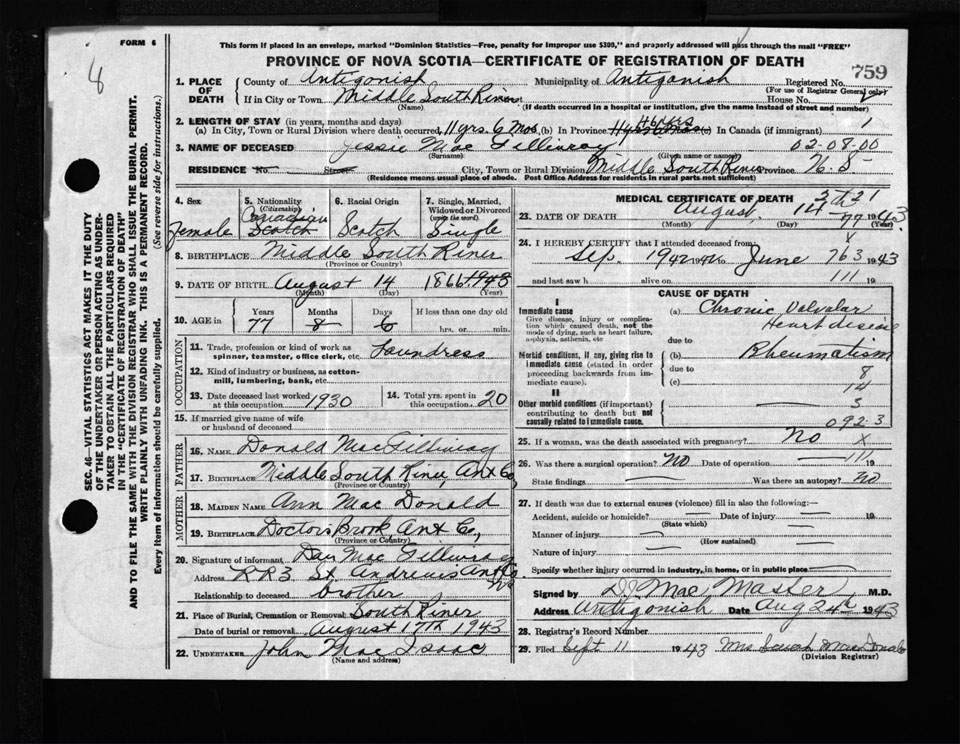 FORM 6
8
This form if placed in an envelope, marked "Dominion Statistics—Free, penalty for improper use $300," and properly addressed will pass through the mail "FREE"
PROVINCE OF NOVA SCOTIA—CERTIFICATE OF REGISTRATION OF DEATH
759
1. PLACE OF DEATH
County of Antigonish Municipality of Antigonish Registered No.
(For use of Registrar General only)
If in City or Town Middle South River House No.
(Name) (If death occurred in a hospital or institution, give the name instead of street and number)
2. LENGTH OF STAY (in years, months and days)
(a) In City, Town or Rural Division where death occurred, 11 yrs. 6 mos (b) In Province (c) In Canada (if immigrant) 1
3. NAME OF DECEASED Jessie Mac Gillivray 02-08-00
(Surname) (Given name or names)
RESIDENCE No. Street City, Town or Rural Division Middle South River Province N. S
(Residence means usual place of abode. Post Office Address for residents in rural parts not sufficient)
4. Sex
Female
5. Nationality
(Citizenship)
Canadian
Scotch
6. Racial Origin
Scotch
7. Single, Married, Widowed or Divorced
(write the word)
Single
8. BIRTHPLACE Middle South River
(Province or Country)
9. DATE OF BIRTH August 14 1866 1943
(Month) (Day) (Year)
10. AGE in
Years Months Days If less than one day old
77 8 6 hrs. or min.
OCCUPATION
11. Trade, profession or kind of work as spinner, teamster, office clerk, etc. Laundress
12. Kind of industry or business, as cotton-mill, lumbering, bank, etc.
13. Date deceased last worked at this occupation 1930
14. Total yrs. spent in this occupation 20
15. If married give name of wife or husband of deceased
FATHER
16. NAME Donald MacGillivray
17. BIRTHPLACE Middle South River Ant Co,
(Province or Country)
MOTHER
18. MAIDEN NAME Ann Mac Donald
19. BIRTHPLACE Doctors Brook Ant Co,
(Province or Country)
20. Signature of informant Dan Mac Gillivray
Address RR3 St. Andrews Ant Co, NS
Relationship to deceased brother
21. Place of Burial, Cremation or Removal South River
Date of burial or removal August 17th 1943
22. UNDERTAKER John Mac Isaac
(Name and address)
MEDICAL CERTIFICATE OF DEATH
23. DATE OF DEATH August 14 77 1943
(Month) (Day) (Year)
24. I HEREBY CERTIFY that I attended deceased from
Sep. 1942 June 763 1943
and last saw h alive on 111 19
CAUSE OF DEATH
I
Immediate cause
Give disease, injury or complication which caused death, not the mode of dying, such as heart failure, asphyxia, asthenia, etc
(a) Chronic Valvular Heart disease
due to
Morbid conditions, if any, giving rise to immediate cause (stated in order proceeding backwards from immediate cause).
(b) Rheumatism
due to 8
(c) 14
II
Other morbid conditions (if important) contributing to death but not causally related to immediate cause.
3
092-3
25. If a woman, was the death associated with pregnancy? No X
26. Was there a surgical operation? No Date of operation 111 19
State findings Was there an autopsy? No
27. If death was due to external causes (violence) fill in also the following:—
Accident, suicide or homicide? Date of injury 19
(State which)
Manner of injury
(How sustained)
Nature of injury
Specify whether injury occurred in industry, in home, or in public place
Signed by D. J. Mac Master M.D.
Address Antigonish Date Aug 24 1943
28. Registrar's Record Number
29. Filed Sept 11 1943 Mrs Sarah MacDonald
(Division Registrar)
SEC. 46—VITAL STATISTICS ACT MAKES IT THE DUTY OF THE UNDERTAKER OR PERSON ACTING AS UNDERTAKER TO OBTAIN ALL THE PARTICULARS REQUIRED IN THE "CERTIFICATE OF REGISTRATION OF DEATH" AND TO FILE THE SAME WITH THE DIVISION REGISTRAR WHO SHALL ISSUE THE BURIAL PERMIT.
WRITE PLAINLY WITH UNFADING INK. THIS IS A PERMANENT RECORD.
Every item of information should be carefully supplied. (See reverse side for instructions.)